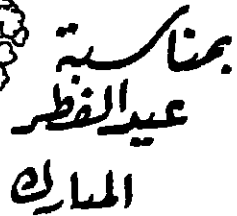 بمناسبة
عيد الفطر
المبارك